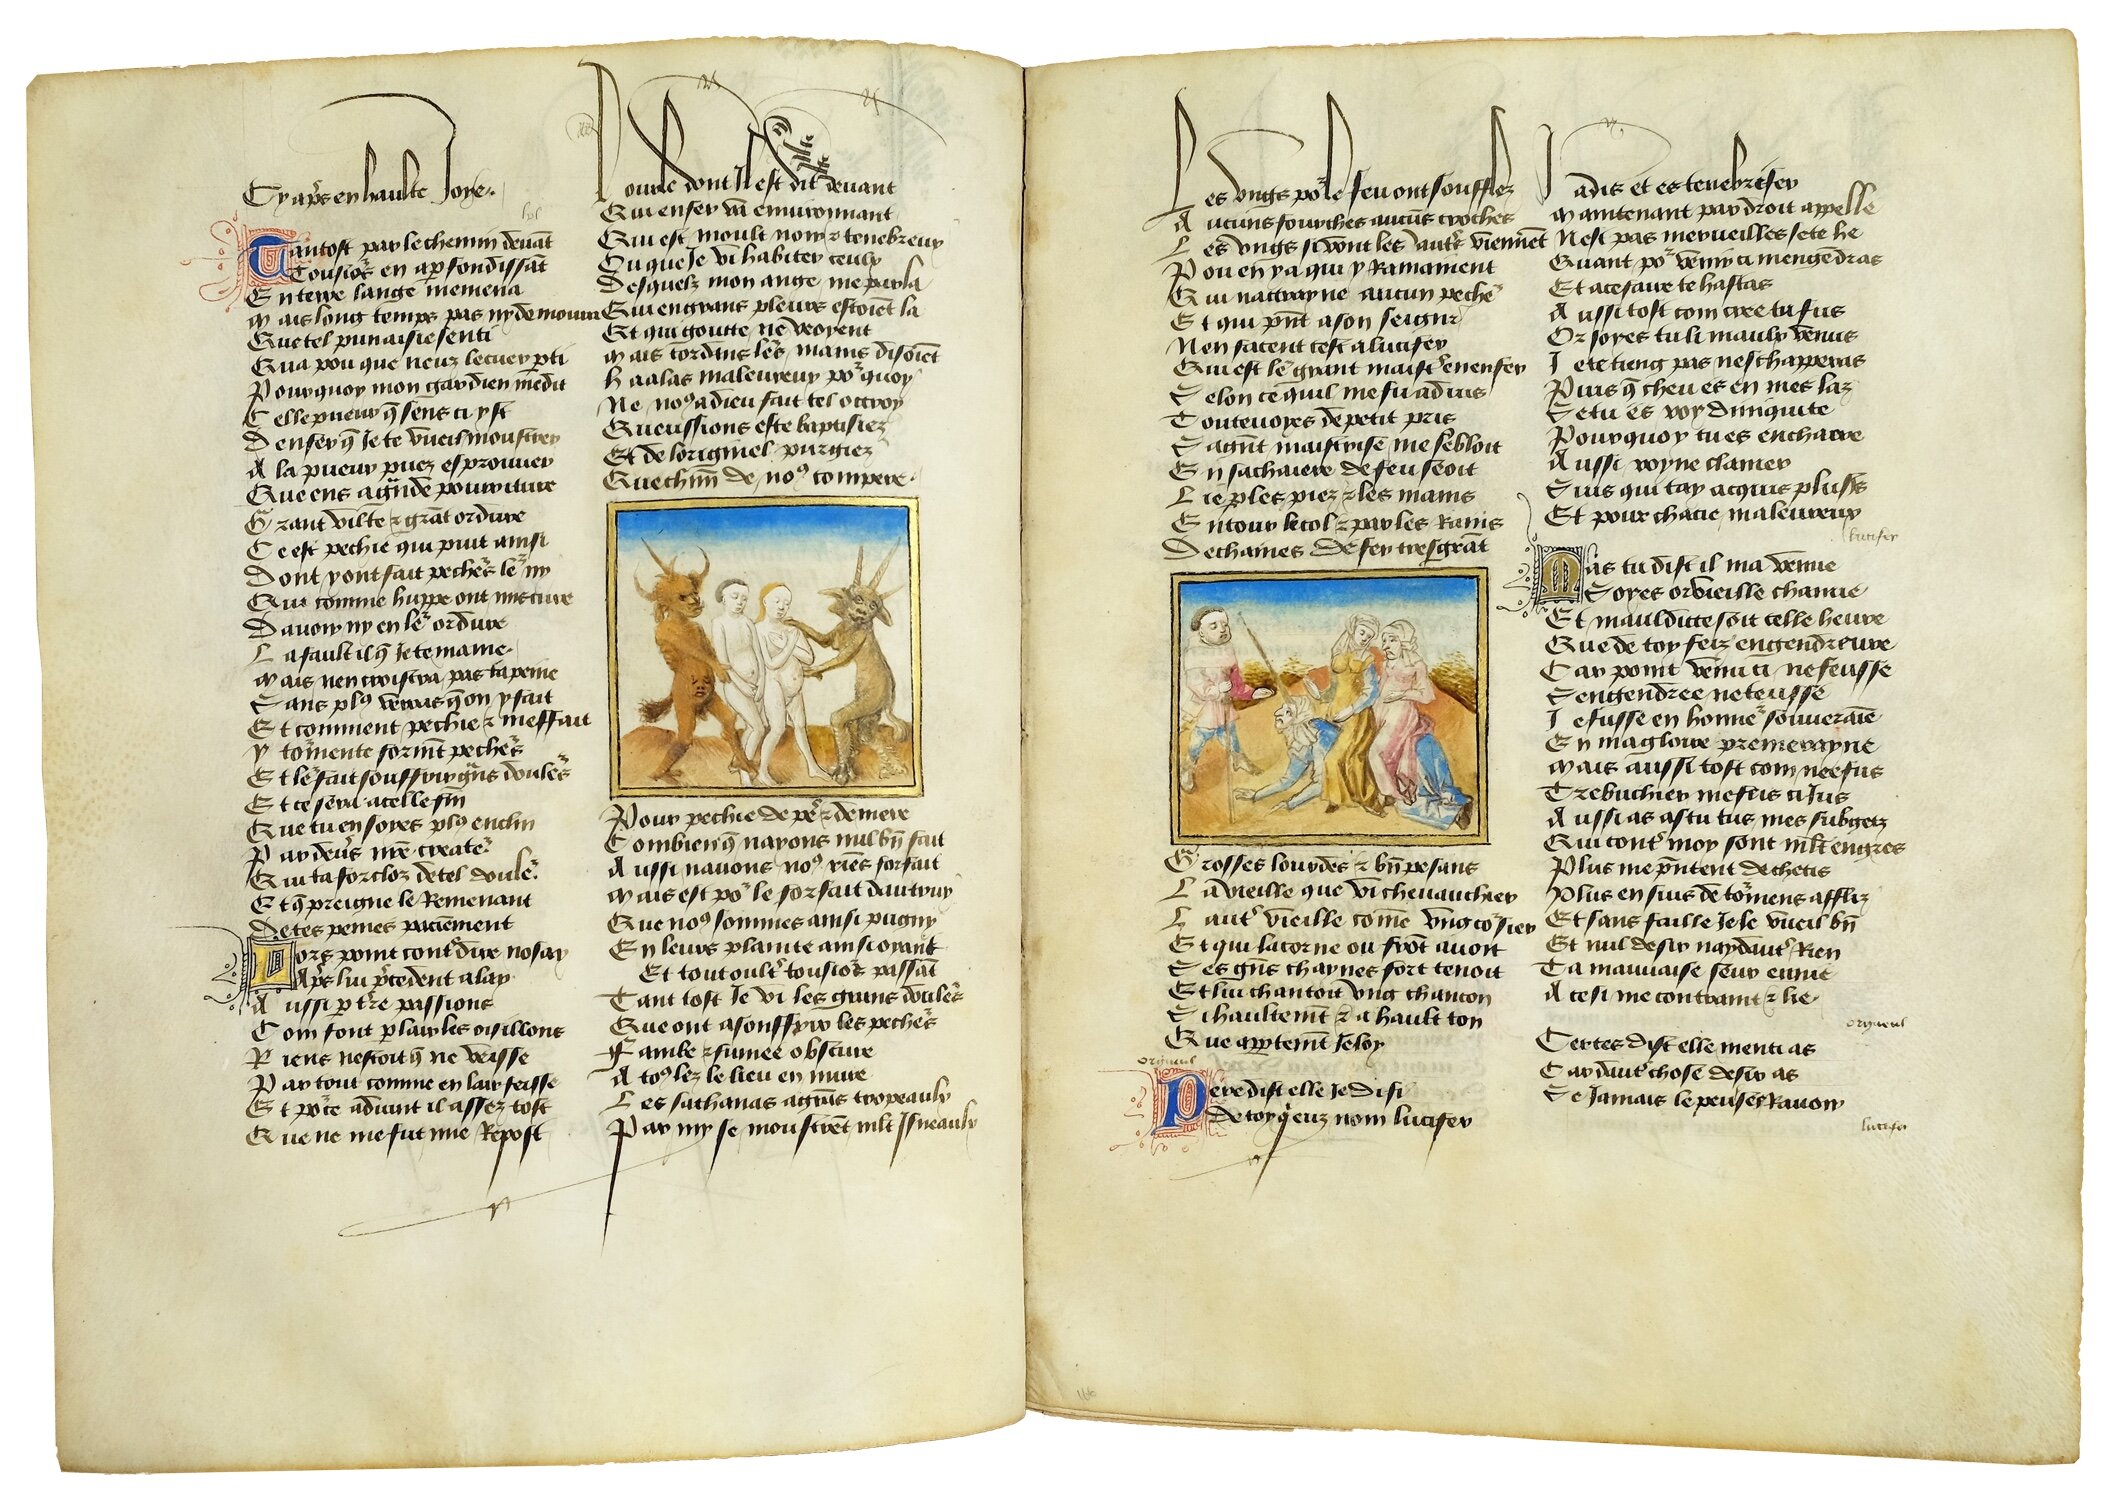 Cy apres en haulte Joye.
Tantost par le chemin devat
Tousiors en aprfondissat
En terre lange memena
Mais long temps pas ny demoura
Que tel punaisie senti
Qua pou que neuz le cuer pti
Pourquoy mon gardien me dit
Celle pueur q sens cy yst
Denfer q Je te vueil moustrer
A la pueur puez esprouver
Que ens a gnde pourriture
Grant vilte & grat ordure
Ce est pechie qui put ainsi
Dont y ont fait pechers le ny
Qui comme huppe ont mis cure
Davoir ny en ler ordure
La fault il q Je te maine
Mais nen croistra pas ta peine
Sans pl9 verras q on y fait
Et comment pechie & meffait
Y tormente formt pechers
Et ler fait souffrir gns doulers
Et ce sera a celle fin
Que tu en soyes pl9 enclin
Par devs nre creater
Qui ta forcloz de tel douler
Et q preigne le Remenant
De tes peines paciement
Lors point contdire nosay
Aps lui pcedent alay
Aussi p tre passions
Com font p lair les oisillons
Riens nestoit q ne veisse
Par tout comme en lair feisse
Et porce advint il assez tost
Que ne me fut mie Repost
Pourle dont Il est dit devant
Qui enfer va environnant
Qui est moult noir & tenebreux
Ou que Je vi habiter ceulx
Desquelz mon ange me parla
Qui en grans pleurs estoiet la
Et qui goutte ne veoyent
Mais tordans lers mains disoiet
Haalas maleureux por quoy
Ne no9 a dieu fait tel ottroy
Que eussions este baptisiez
Et de loriginel purgiez
Que chun de no9 compere
Pour pechie de pe & de mere
Combien q nayons nul bn fait
Aussi navons no9 ries forfait
Mais est por le forfait dautruy
Que no9 sommes ainsi pugny
En leurs plainte ainsi oyant
Et tout oultr tousiors passat
Tant tost Je vi les grans doulers
Que ont a souffrir les pechers
Flambe & fumee obscure
A to9 lez le lieu en mure
Les sathanas a gns tropeaulx
Par my se moustret mlt Isneaulx
Les vngs por le feu ont soufflez
Aucuns fourches aucus croches
Les vngs si vont les autrs viennet
Pou en y a qui y Ramainent
Qui nattrayne aucun peche
Et qui pnt a son seignr
Nen facent cest a lucifer
Qui est le grant maistr en enfer
Selon ce quil me fu advis
Toutevoyes de petit pris
Sa gnt maistrise me sebloit
En sa chaiere de feu seoit
Lie p les piez & les mains
Entour le col & par les Rains
De chaines de fer tresgrat
Grosses lourdes & bn pesans
La vieille que vi chevauchier
Lautr vieille come vng corsier
Et qui la corne ou frot avoit
Ses gns chaynes fort tenoit
Et lui chantoit vng chancon
Si haultemt & a hault ton
Que apptemt Je loy
orgueul
Pere dist elle Je di fi
De toy q euz nom lucifer
Jadis et es tenebrefer
Maintenant par droit appelle
Nest pas merveilles se te he
Quant por venir ci mengendras
Et a ce faire te hastas
Aussi tost com cree tu fus
Or soyes tu li maulx venus
Je te tieng pas neschapperas
Puis q cheu es en mes laz
Se tu es roy diniquite
Pourquoy tu es enchatre
Aussi royne clamer
Suis qui tay acquis plusrs
Et pour chacie maleureux
lucifer
Mas tu dist il ma venue
Soyes or vieille chanue
Et mauldicte soit celle heure
Que de toy feiz engendreure
Car point venu ci ne feusse
Sengendree ne teusse
Je fusse en honner souveraie
En ma gloire premerayne
Mais aussi tost com nee fus
Trebuchier me feis ci Jus
Aussi as astu tus mes subgez
Qui contr moy sont mlt engres
Plus me pntent de chetis
Plus en suis de tormens affliz
Et sans faille Je le vueil bn
Et nul desir nay dautr Rien
Ta mauvaise seur envie
A cesi me contraint & lie.
orgueul
Certes dist elle menti as
Car dautr chose desir as
Se Jamais le pensers Ravoir
lucifer